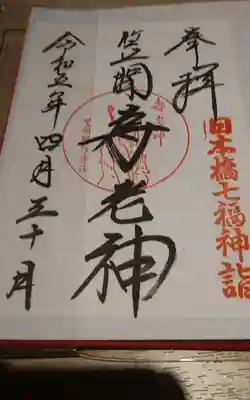 奉拝
日本橋七福神詣
笠間寿老神
壽老神
令和五年四月三十日